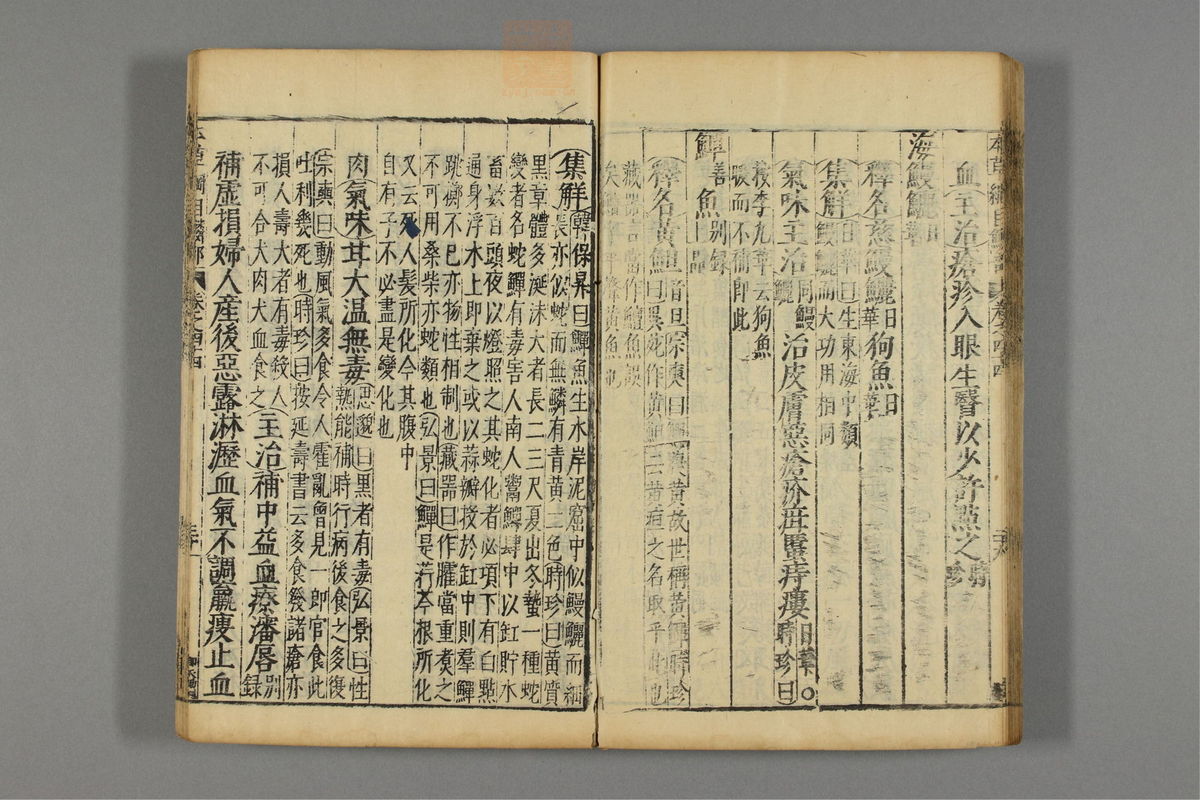 血主治瘡疹入眼生瞖以少許點之時珍
海鰻鱺日華
釋名慈鰻鱺日華狗魚日華
集解日華曰生東海中類
鰻鱺而大功用相同
氣味主治同鰻鱺治皮膚惡瘡疥疳䘌痔瘻日華〇時珍曰
按李九華云狗魚
暖而不補即此
鱓善魚别録上品
釋名黃䱇音旦宗奭曰鱓腹黃故世稱黃鱓時珍
曰異苑作黃䱇云黃疸之名取乎此也
藏器言當作鱣魚誤
矣鱣字平聲黃魚也
集解韓保昇曰鱓魚生水岸泥窟中似鰻鱺而細
長亦似蛇而無鱗有青黃二色時珍曰黃質
黑章體多涎沫大者長二三尺夏出冬蟄一種蛇
變者名蛇鱓有毒害人南人鬻鱓肆中以缸貯水
畜數百頭夜以燈照之其蛇化者必項下有白點
通身浮水上即棄之或以蒜瓣投於缸中則羣鱓
跳擲不已亦物性相制也藏器曰作臛當重煮之
不可用桑柴亦蛇類也弘景曰鱓是荇芩根所化
又云死人髮所化今其腹中
自有子不必盡是變化也
肉氣味甘大温無毒思邈曰黑者有毒弘景曰性
熱能補時行病後食之多復
宗奭曰動風氣多食令人霍亂曾見一郎官食此
吐利幾死也時珍曰按延壽書云多食發諸瘡亦
損人壽大者有毒殺人
不可合犬肉犬血食之主治補中益血療瀋唇别録
補虛損婦人産後惡露淋瀝血氣不調羸痩止血
本草綱目鱗部 卷之四十四